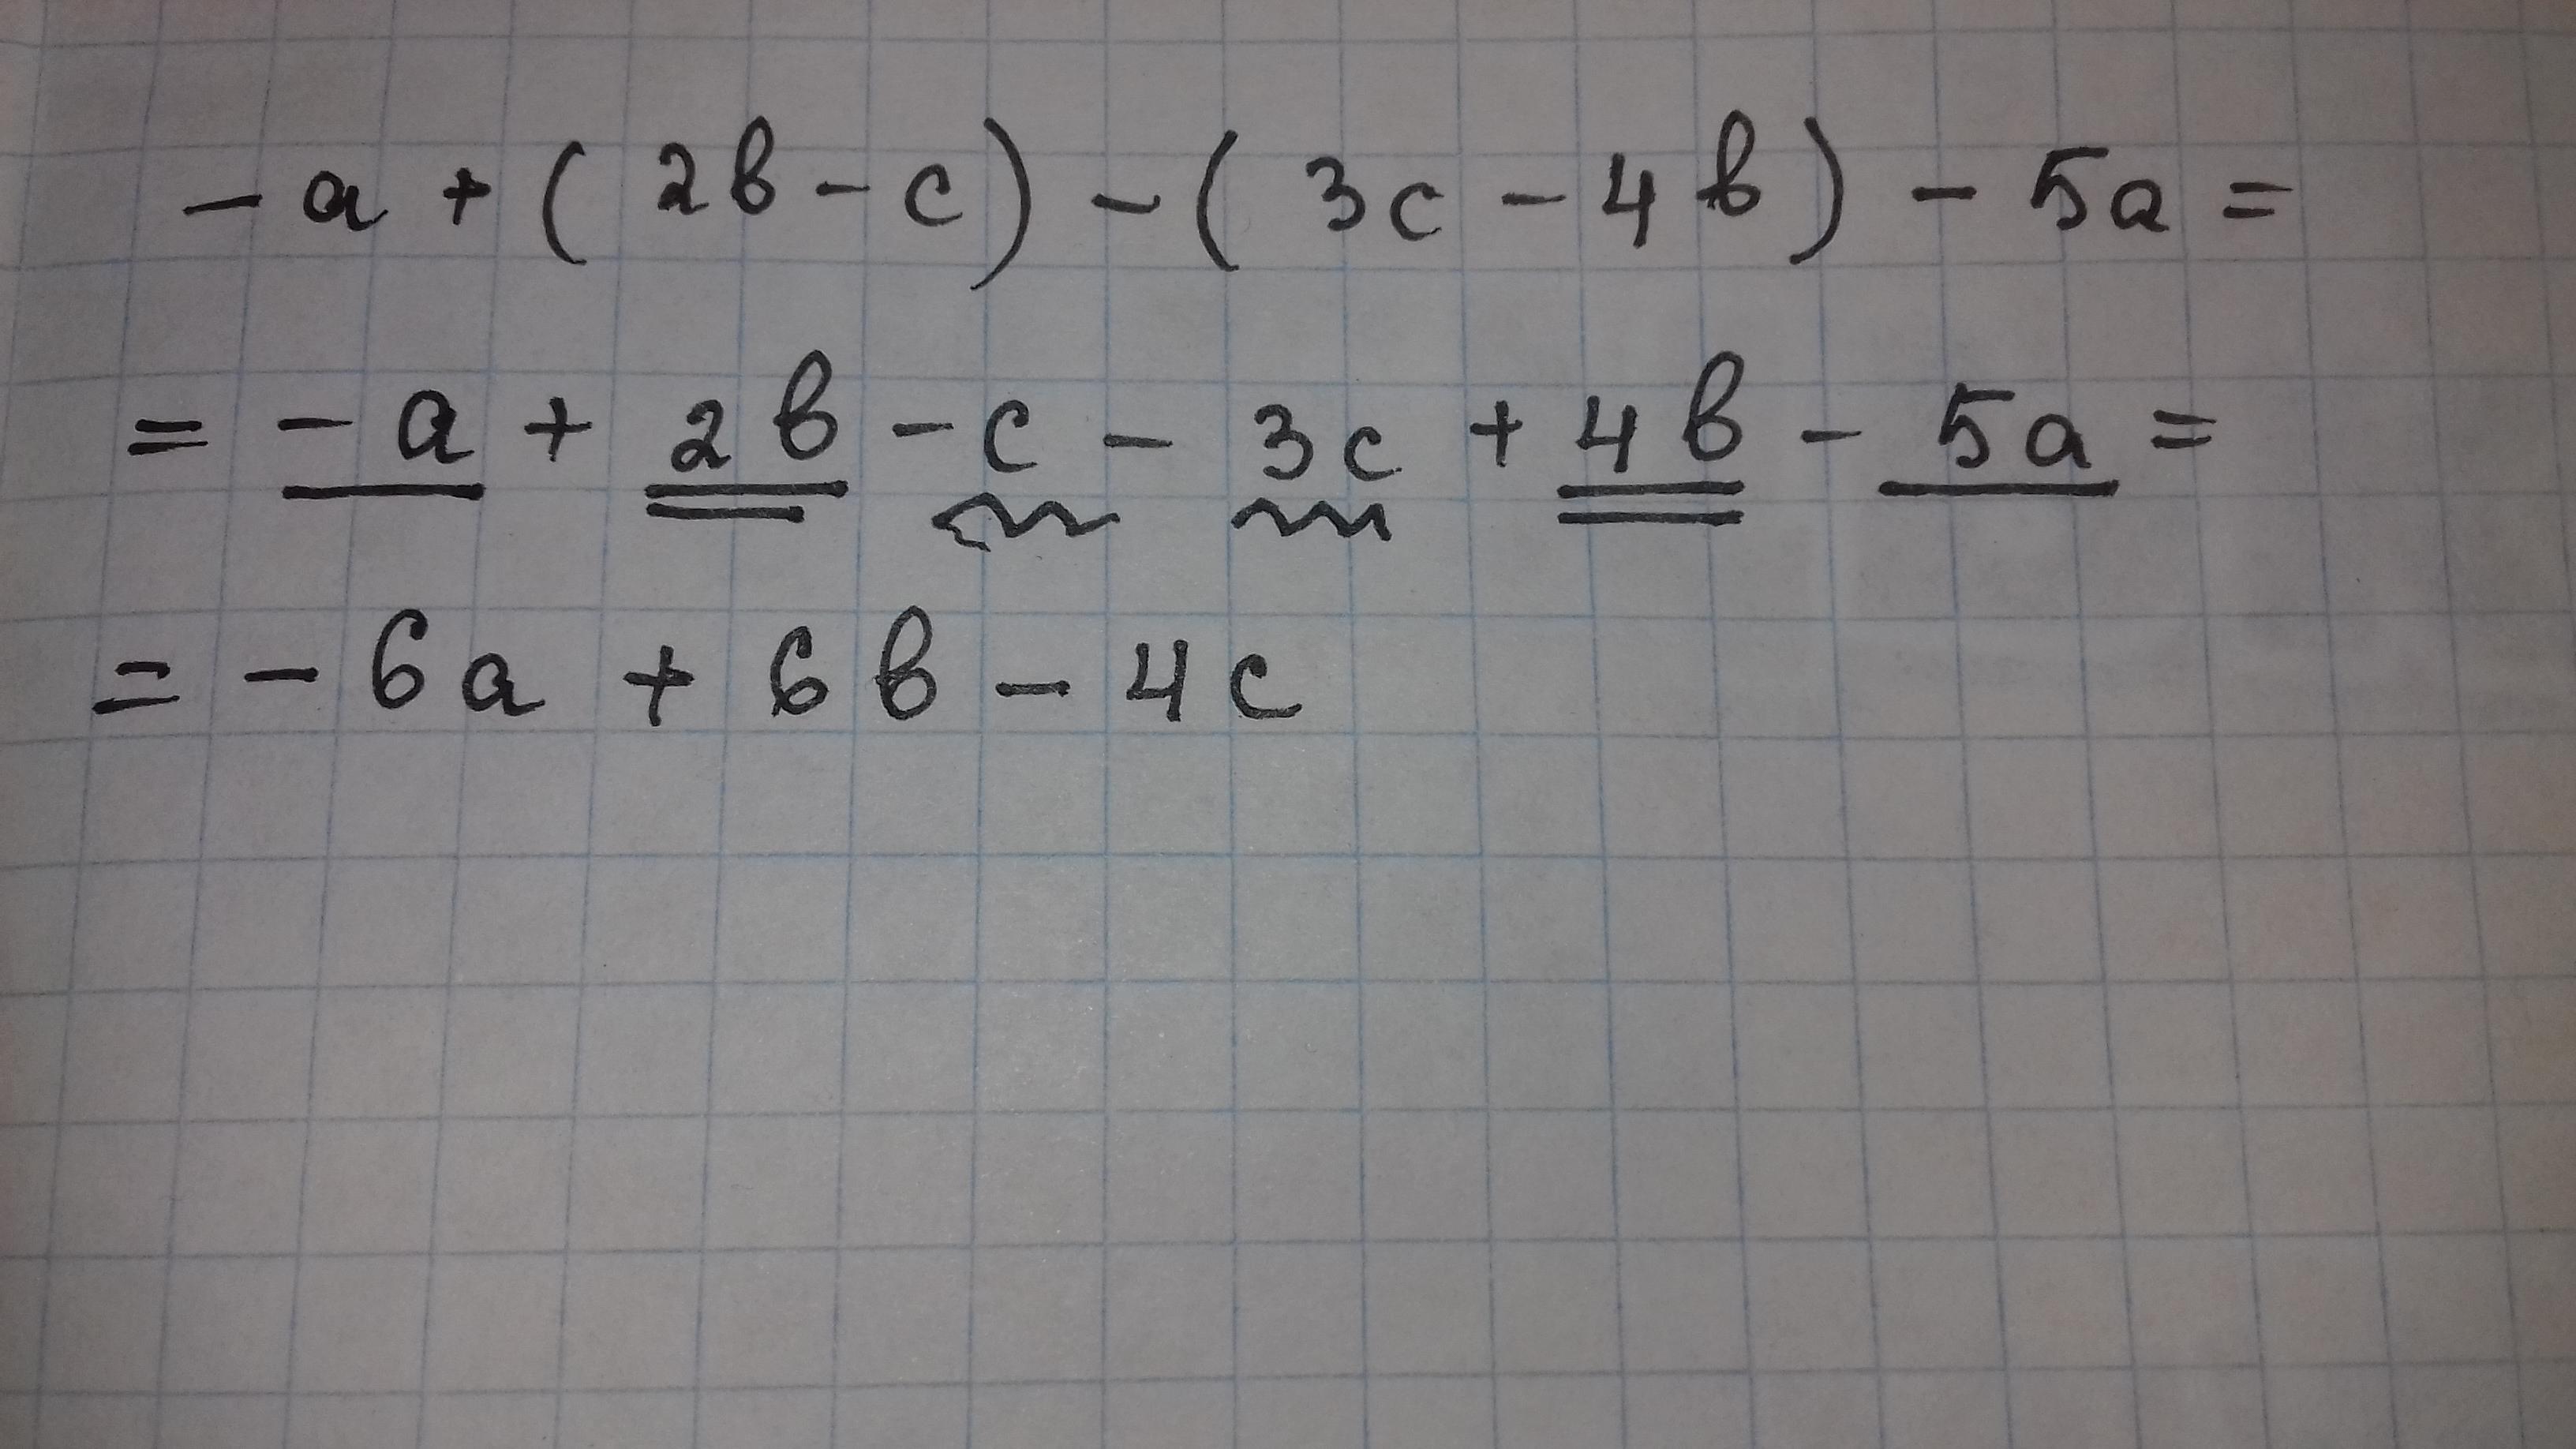 - a + ( 2b - c ) - ( 3c - 4b ) - 5a =
= - a + 2b - c - 3c + 4b - 5a =
= - 6a + 6b - 4c